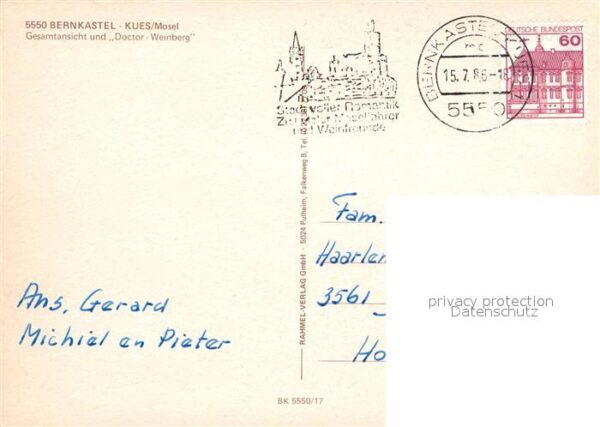 5550 BERNKASTEL - KUES/Mosel
Gesamtansicht und „Doctor - Weinberg"
Stadt voller Romantik
Ziel vieler Moselfahrer
und Weinfreunde
BERNKASTEL-KUES
mc
15.7.86-18
5550
DEUTSCHE BUNDESPOST
60
RAHMEL-VERLAG GmbH · 5024 Pulheim, Falkenweg 8, Tel.
Fam.
Haarlem
3561
Ho
privacy protection
Datenschutz
Ans, Gerard
Michiel en Pieter
BK 5550/17